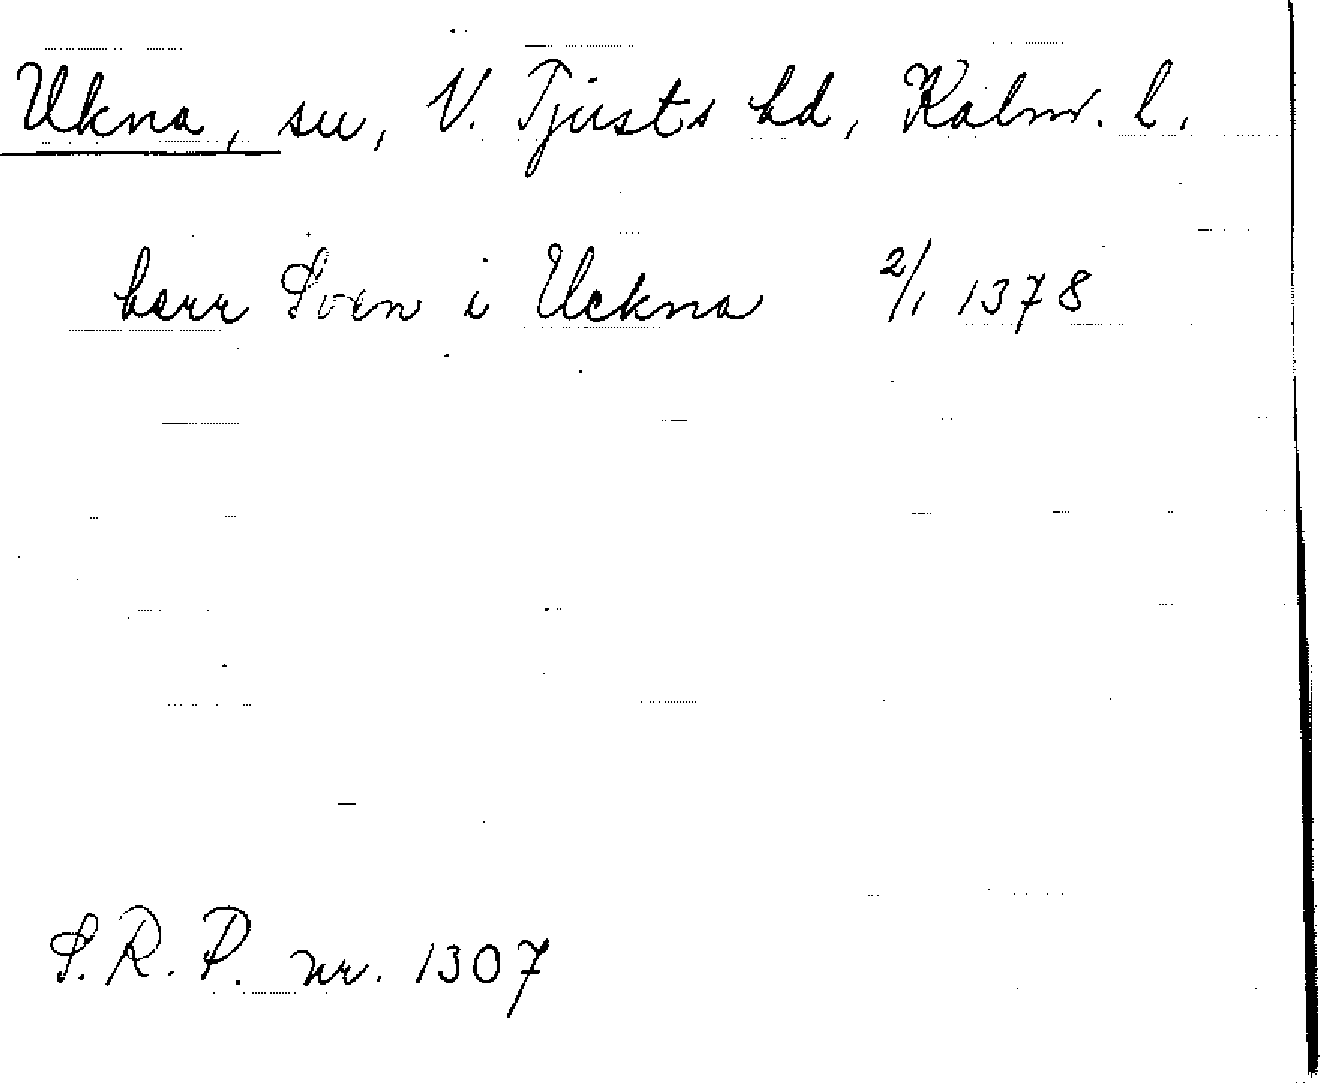 Ukna, sn, N. Tjusts hd, Kalm. l.
herr Sven i Uckna 2/1 1378
S.R.P. nr. 1307